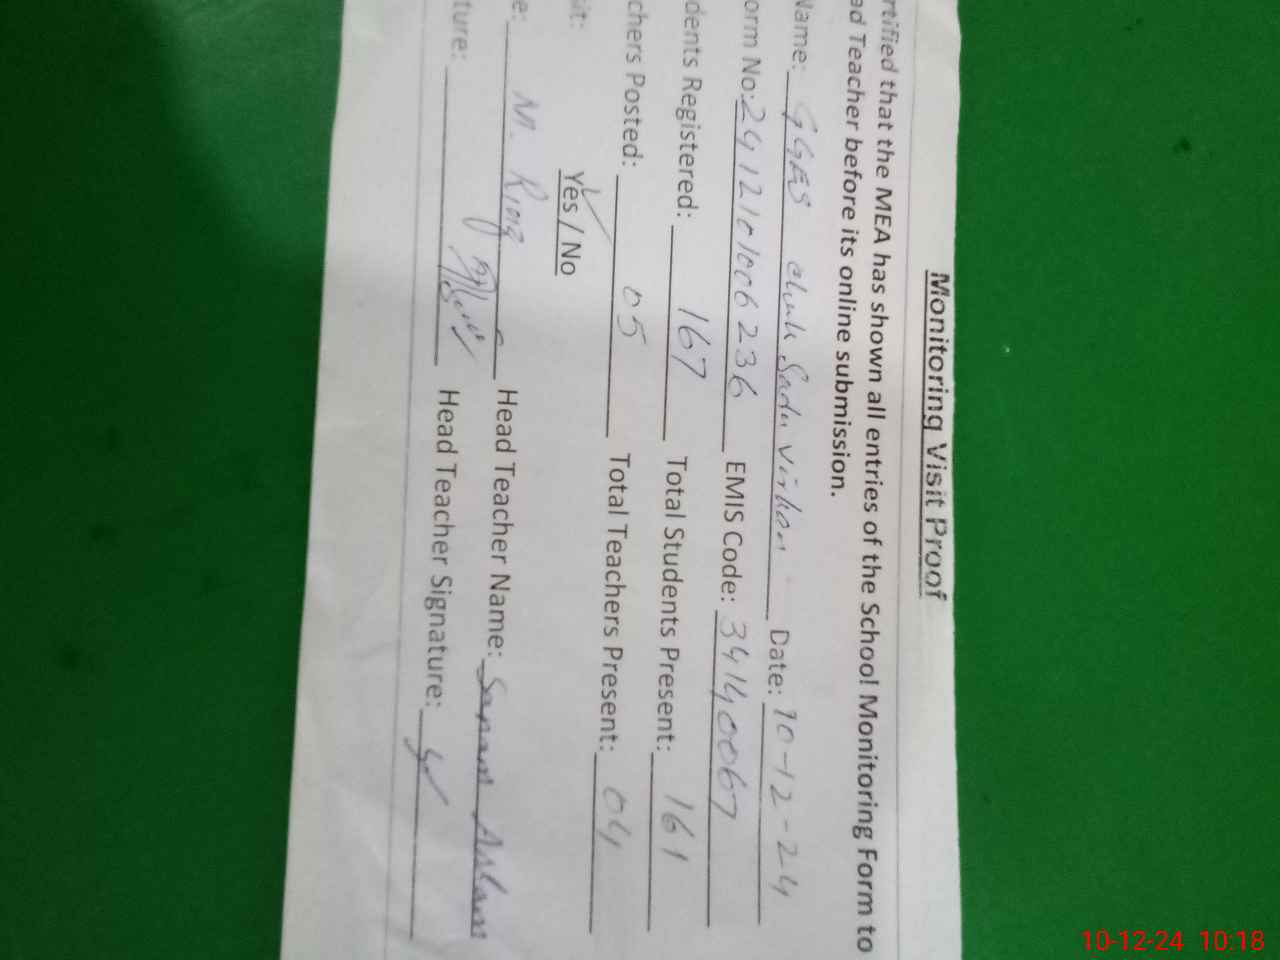 Monitoring Visit Proof
rtified that the MEA has shown all entries of the School Monitoring Form to
ad Teacher before its online submission.
Name: GGES Chak Sada Date: 10-12-24
orm No: 2412101006236 EMIS Code: 34140067
dents Registered: 167 Total Students Present: 161
chers Posted: 05 Total Teachers Present: 04
it: Yes / No
e: M. Riaz Head Teacher Name: Sanam Aslam
ture: Head Teacher Signature:
10-12-24 10:18